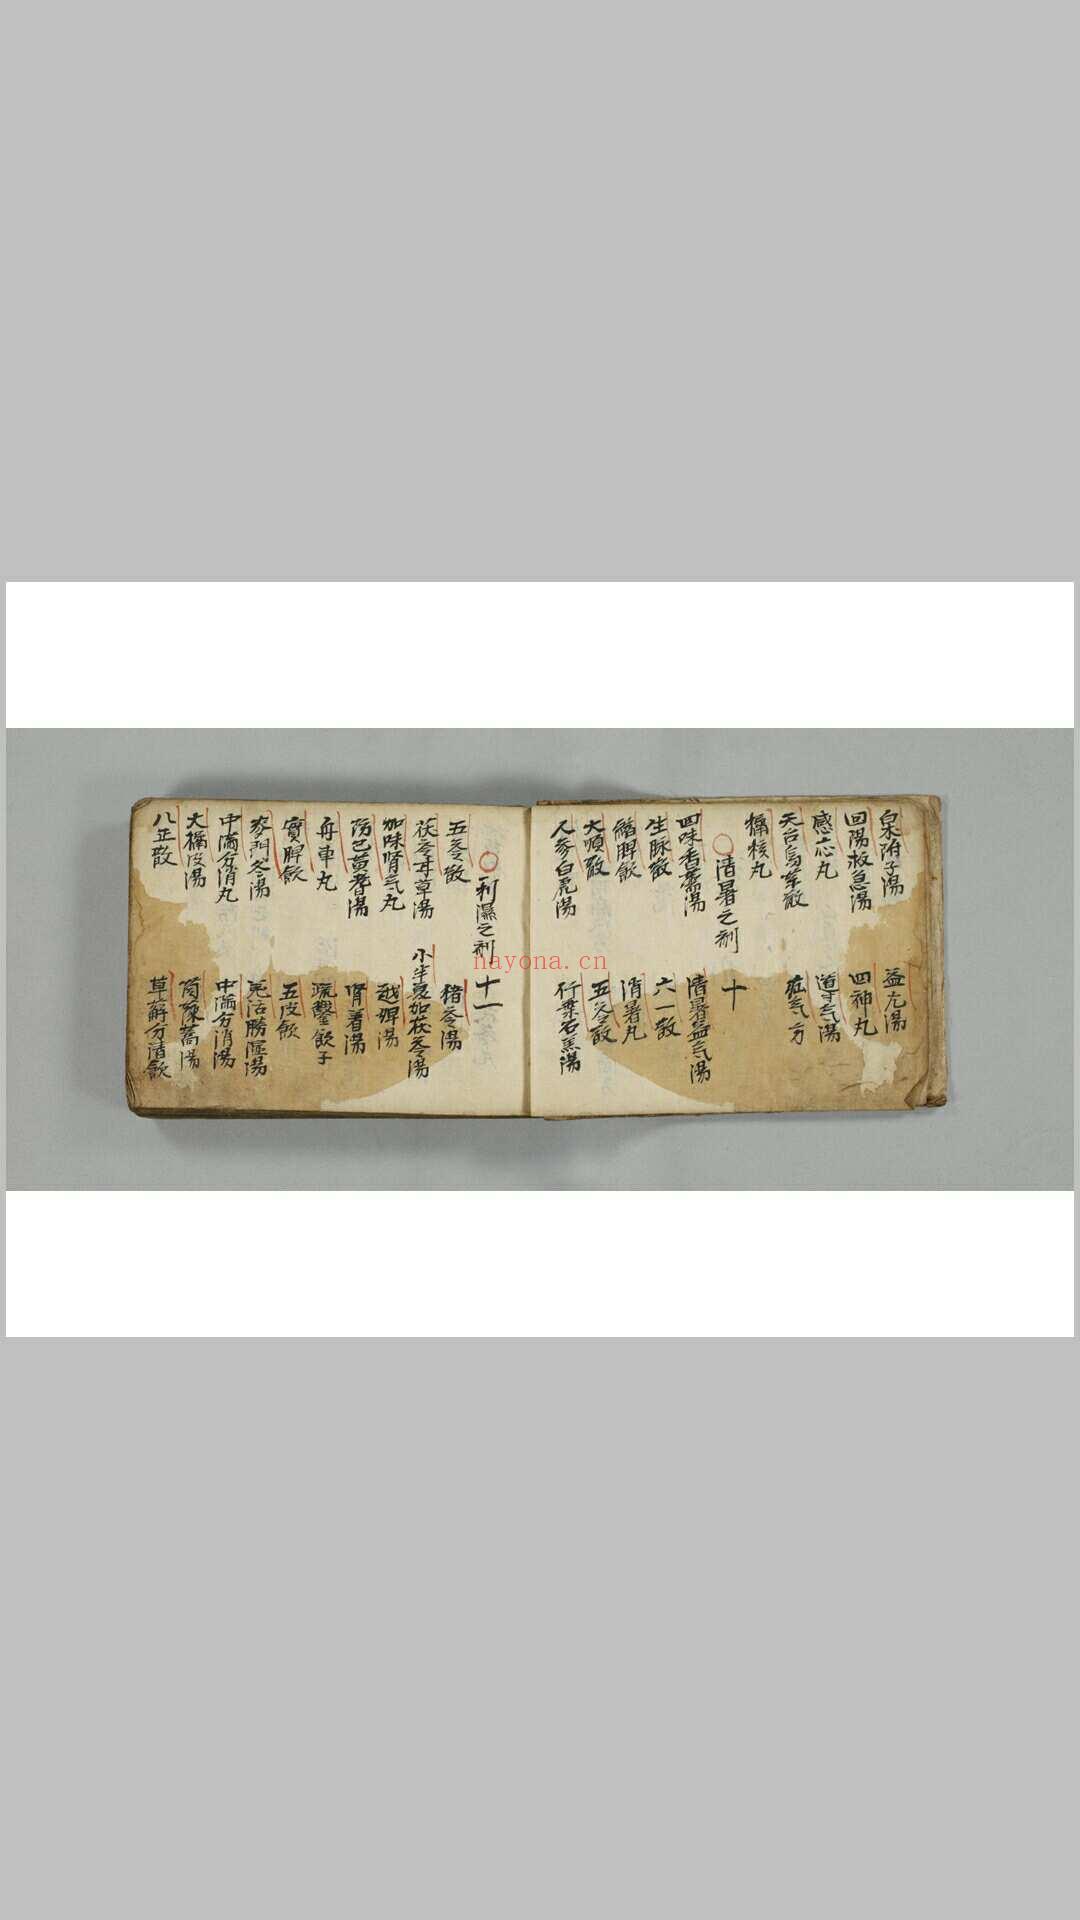 白朮附子湯 益元湯
回陽救急湯 四神丸
感应丸 導气湯
天台烏葯散 疝气方
橘核丸
○清暑之剤 十
四味香薷湯 清暑益气湯
生脉散 六一散
縮脾飲 消暑丸
大順散 五苓散
人参白虎湯 竹葉石羔湯
○利濕之剤 十一
五苓散 猪苓湯
茯苓甘草湯 小半夏加茯苓湯
加味腎气丸 越婢湯
防己黄耆湯 腎着湯
舟車丸 疏鑿飲子
實脾飲 五皮飲
麥門冬湯 羌活勝湿湯
中滿分消丸 中滿分消湯
大橘皮湯 茵陳蒿湯
八正散 萆薢分清飲
nayona.cn